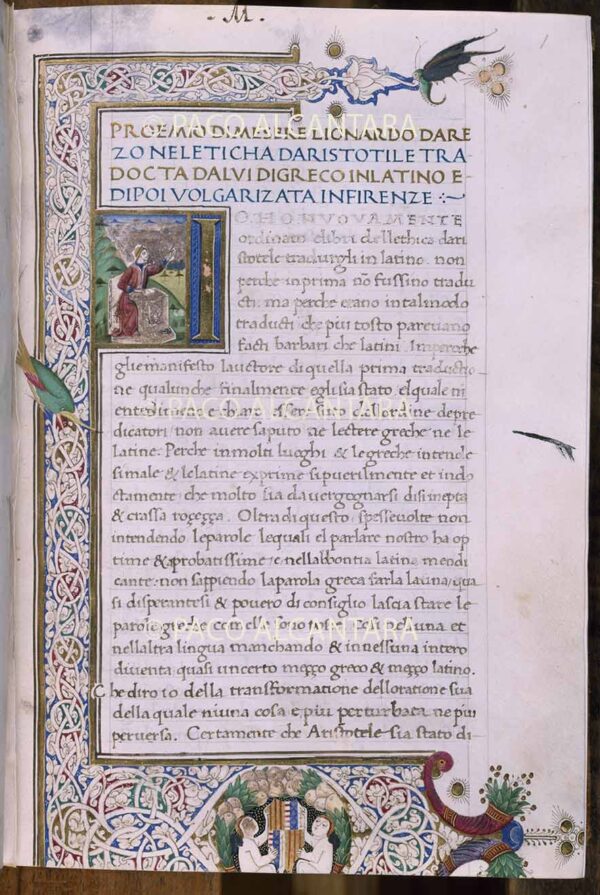 M
PROEMIO DI MESERE LIONARDO DARE
ZO NELETICHA DARISTOTILE TRA
DOCTA DALVI DIGRECO INLATINO E
DIPOI VOLGARIZATA INFIRENZE
I O HO NVOVAMENTE
ordinato elibri dellethica dari
stotele tradurgli in latino. non
perche inprima nõ fussino tradu
cti. ma perche erano intalmodo
traducti che piu tosto pareuano
facti barbari che latini. Imperoche
glie manifesto lauctore di quella prima traductio
ne qualunche finalmente egli sia stato, elquale
essere stato dellordine depre
dicatori non auere saputo ne lectere greche ne le
latine. Perche in molti luoghi & le greche intende
si male & le latine exprime si puerilmente et indo
ctamente che molto sia da uergognarsi di si inepta
& crassa roçeçça. Oltra di questo spesseuolte non
intendendo leparole lequali el parlare nostro ha op
time & aprobatissime nellabontia latina mendi
cante: non sappiendo laparola greca farla latina, qua
si disperantesi & pouero di consiglio lascia stare le
parole greche come le sono poste. Cosi nelluna et
nellaltra lingua manchando & innessuna intero
diuenta quasi uncerto meçço greco & meçço latino.
Che diro io della transformatione delloratione sua
della quale niuna cosa e piu perturbata ne piu
peruersa. Certamente che Aristotele sia stato di
© PACO ALCANTARA
© PACO ALCANTARA
© PACO ALCANTARA